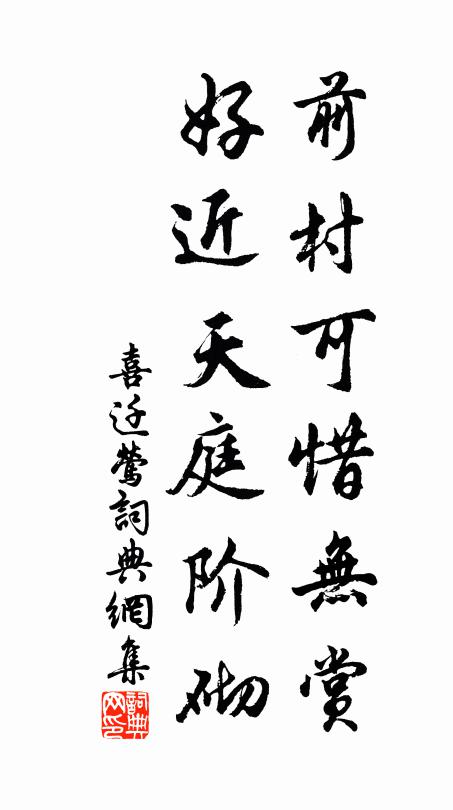 前村可惜無赏
好近天庭阶砌
喜迁莺詞典網集
詞典网印